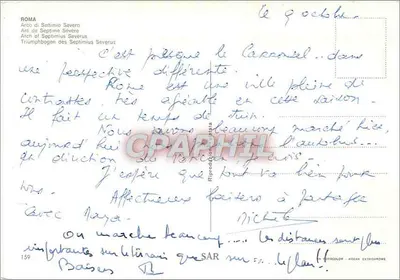 ROMA
Arco di Settimio Severo
Arc de Septime Sévère
Arch of Septimius Severus
Triumphbogen des Septimius Severus
le 9 octobre
C'est presque le Carrousel... dans
une perspective différente.
Rome est une ville pleine de
contrastes, très agréable en cette saison.
Il fait un temps de juin.
Nous avons beaucoup marché hier,
aujourd'hui l'autobus...
en direction de
J'espère que tout va bien pour
vous.
Affectueux baisers à partager
avec Maya.
Michèle
On marche beaucoup.... les distances sont plus
importantes sur le terrain que sur ... le plan!!
Baisers
CPAPHIL
159
SAR